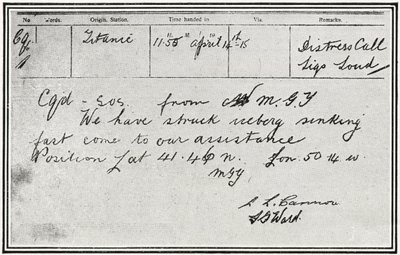 No Words. Origin. Station. Time handed in Via Remarks.
Cq. Titanic 11.50 H. M. April 14th-15 Distress Call
Ligs Loud
Cqd - Sos. from M.G.Y
We have struck iceberg sinking
fast come to our assistance
Position Lat 41.46 n. Lon. 50.14 w.
MGY
Ward.